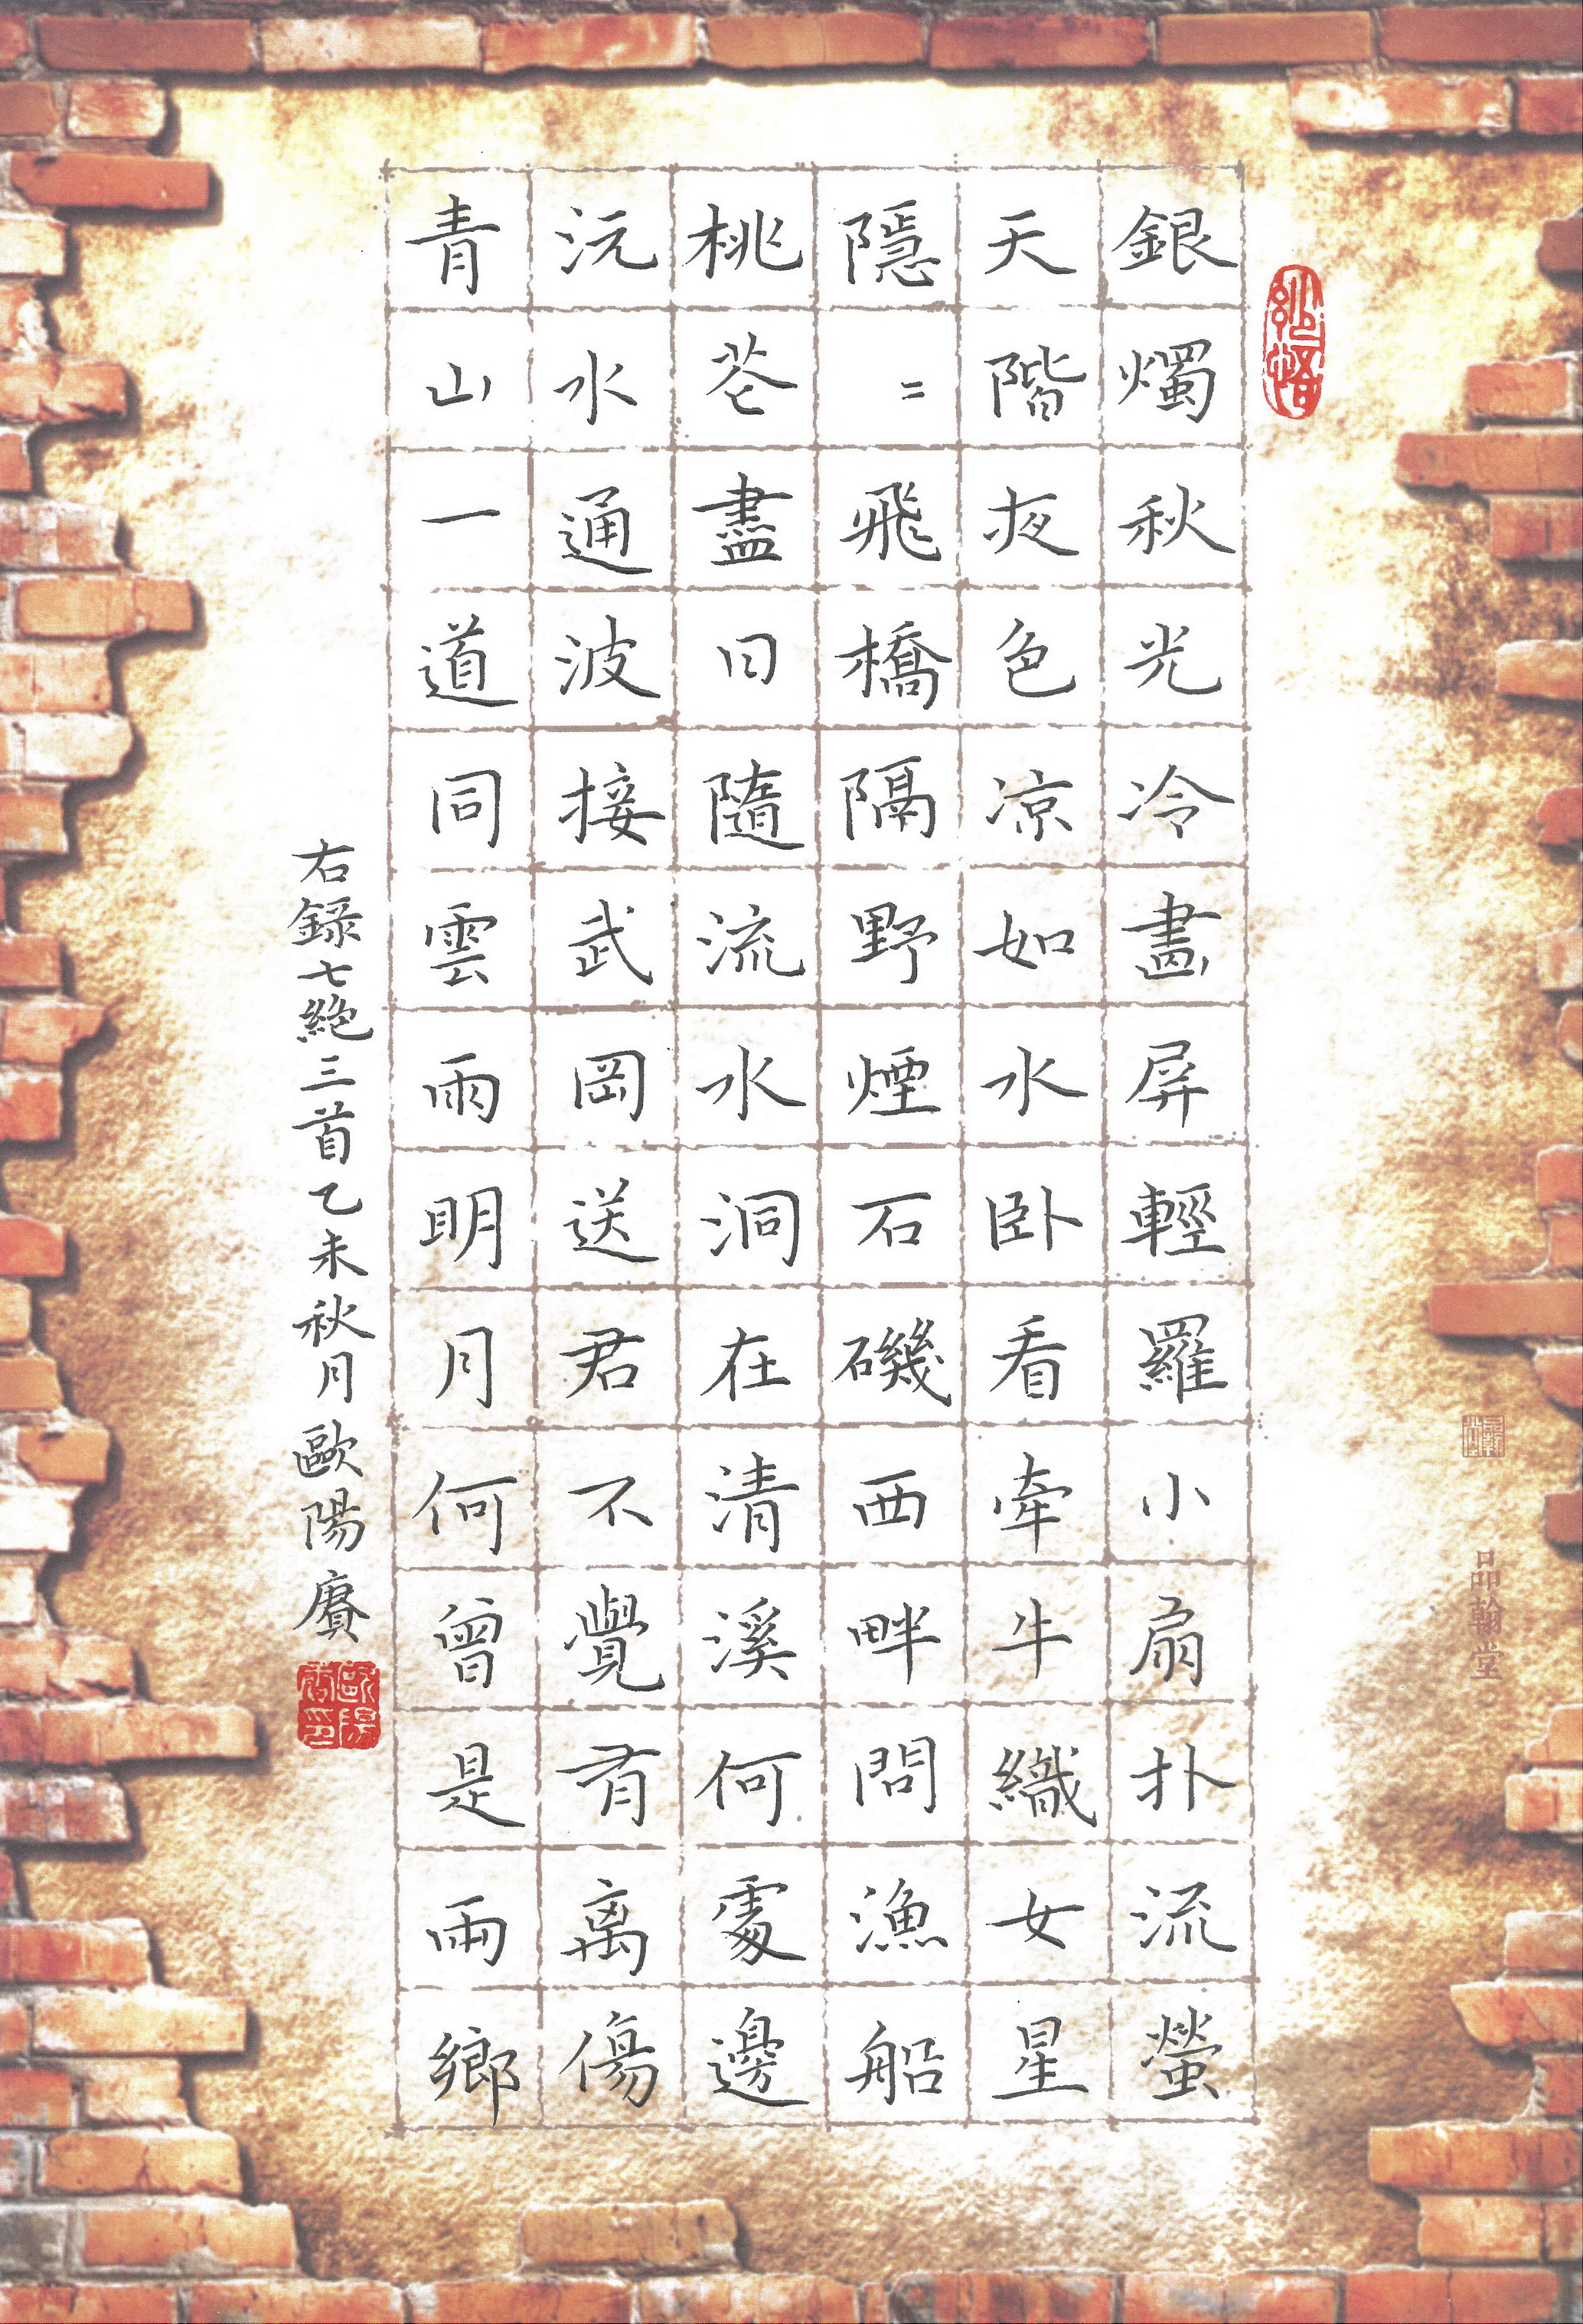 銀燭秋光冷畫屏輕羅小扇扑流螢
天階夜色凉如水卧看牽牛織女星
隱〻飛橋隔野煙石磯西畔問漁船
桃苍盡日隨流水洞在清溪何處邊
沅水通波接武岡送君不覺有离傷
青山一道同雲雨明月何曾是兩鄉
右錄七絶三首乙未秋月歐陽賡
品翰堂